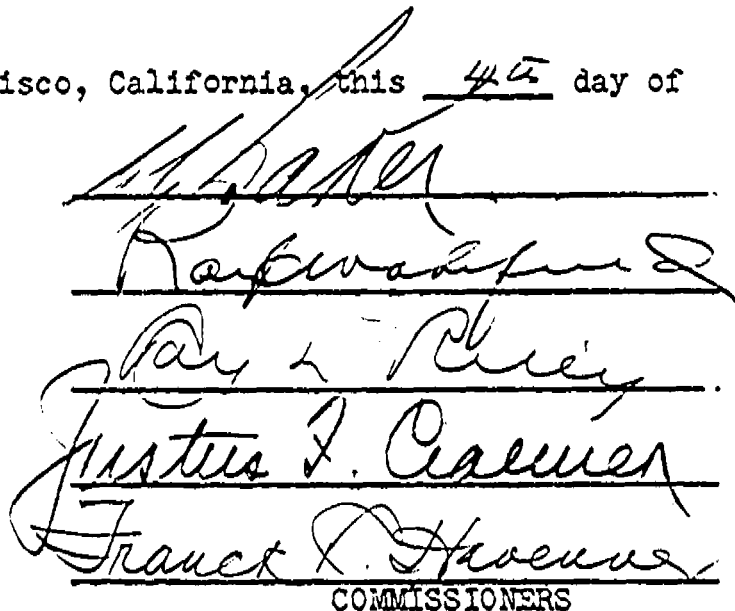 isco, California, this 4th day of
Ray L. Riley
Justus F. Craemer
Franck R. Havenner
COMMISSIONERS